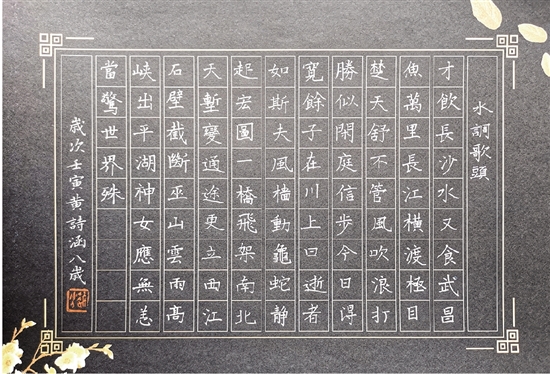 水調歌頭
才飲長沙水又食武昌
魚萬里長江橫渡極目
楚天舒不管風吹浪打
勝似閑庭信步今日得
寬餘子在川上曰逝者
如斯夫風檣動龜蛇靜
起宏圖一橋飛架南北
天塹變通途更立西江
石壁截斷巫山雲雨高
峽出平湖神女應無恙
當驚世界殊
歲次壬寅黃詩涵八歲